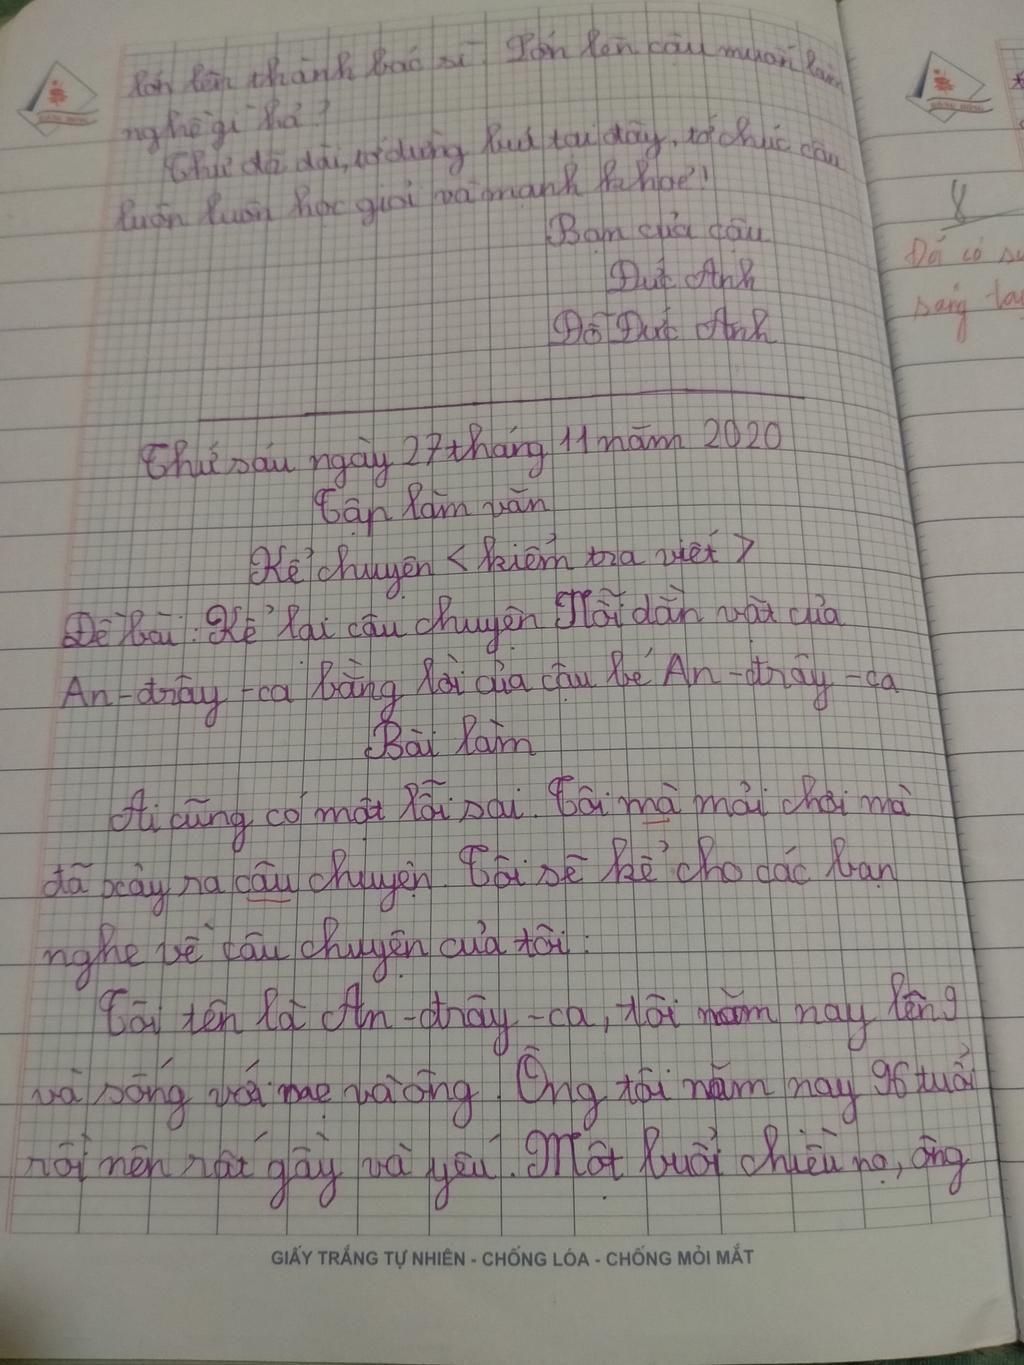 lớn lên thành bác sĩ. Lớn lên cậu muốn làm
nghề gì hả?
Thư đã dài, tớ dừng bút tại đây, tớ chúc cậu
luôn luôn học giỏi và mạnh khỏe!
Bạn của cậu
Đức Anh
Đỗ Đức Anh
Thứ sáu ngày 27 tháng 11 năm 2020
Tập làm văn
Kể chuyện < kiểm tra viết >
Đề bài: Kể lại câu chuyện Nỗi dằn vặt của
An-đrây-ca bằng lời của cậu bé An-đrây-ca
Bài làm
Ai cũng có một lỗi sai. Tôi mà mải chơi mà
đã xảy ra câu chuyện. Tôi sẽ kể cho các bạn
nghe về câu chuyện của tôi:
Tôi tên là An-đrây-ca, tôi năm nay lên 9
và sống với mẹ và ông. Ông tôi năm nay 96 tuổi
rồi nên rất gầy và yếu. Một buổi chiều nọ, ông
GIẤY TRẮNG TỰ NHIÊN - CHỐNG LÓA - CHỐNG MỎI MẮT
8
Đã có
sáng